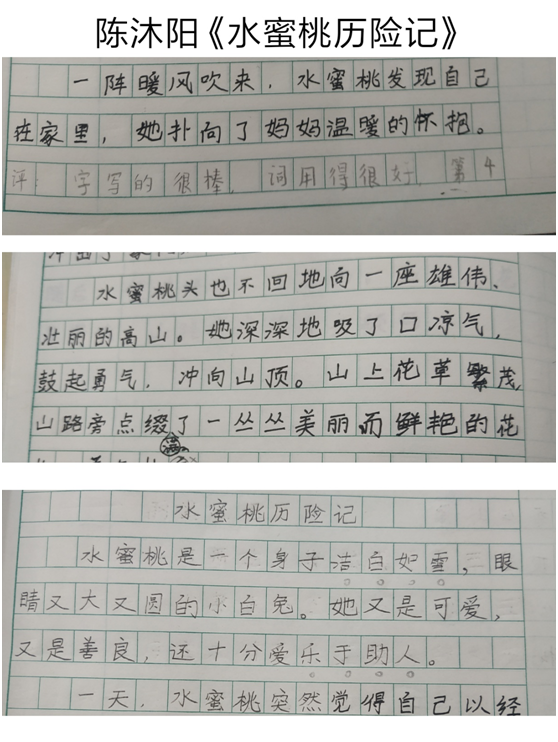 陈沐阳《水蜜桃历险记》
一阵暖风吹来，水蜜桃发现自己
在家里，她扑向了妈妈温暖的怀抱。
评：字写的很棒，词用得很好，第4
水蜜桃头也不回地向一座雄伟、
壮丽的高山。她深深地吸了口凉气，
鼓起勇气，冲向山顶。山上花草繁茂，
山路旁点缀了一丛丛美丽而鲜艳的花
水蜜桃历险记
水蜜桃是一个身子洁白如雪，眼
睛又大又圆的小白兔。她又是可爱，
又是善良，还十分爱乐于助人。
一天，水蜜桃突然觉得自己以经